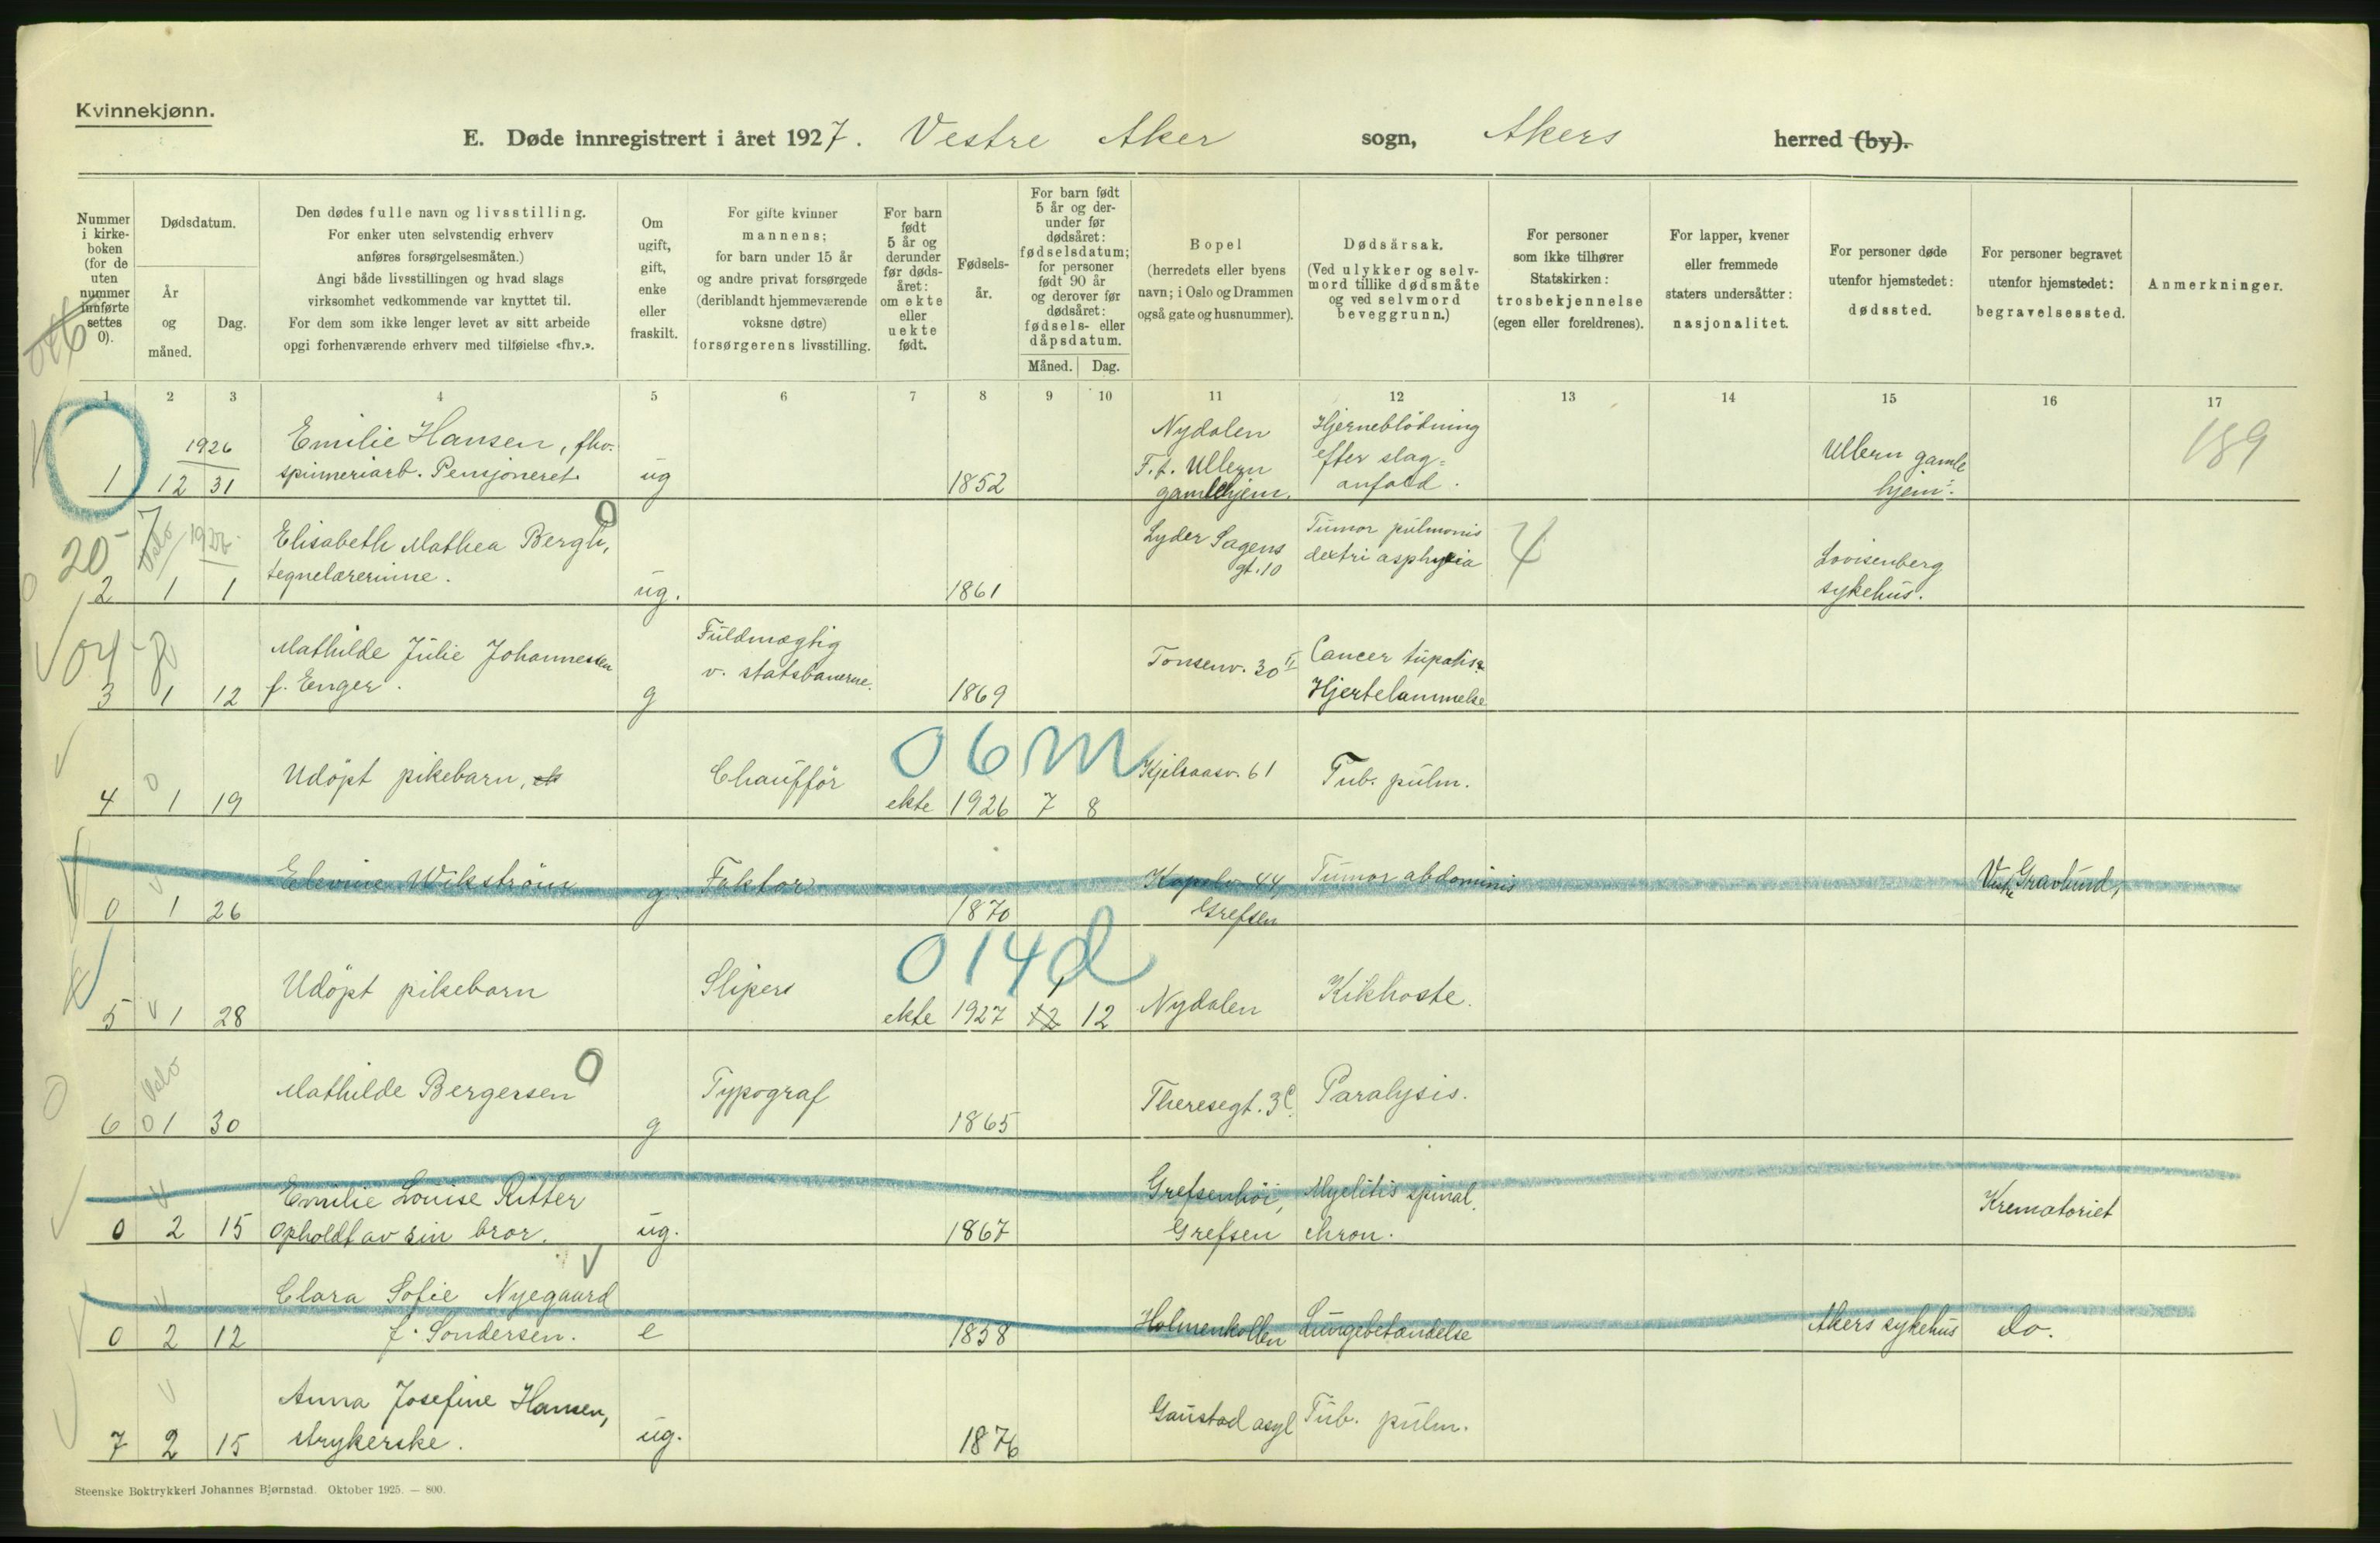 Kvinnekjønn.
E. Døde innregistrert i året 1927. Vestre Aker sogn, Akers herred (by).
Nummer i kirke-boken (for de uten nummer innførte settes 0).
Dødsdatum.
År og måned.
Dag.
Den dødes fulle navn og livsstilling.
For enker uten selvstendig erhverv
anføres forsørgelsesmåten.)
Angi både livsstillingen og hvad slags
virksomhet vedkommende var knyttet til.
For dem som ikke lenger levet av sitt arbeide
opgi forhenværende erhverv med tilføielse «fhv.».
Om ugift, gift, enke eller fraskilt.
For gifte kvinner
mannens;
for barn under 15 år
og andre privat forsørgede
(deriblandt hjemmeværende
voksne døtre)
forsørgerens livsstilling.
For barn født 5 år og derunder før døds-året: om ekte eller uekte født.
Fødsels-år.
For barn født 5 år og der-under før dødsåret: fødselsdatum; for personer født 90 år og derover før dødsåret: fødsels- eller dåpsdatum.
Måned. Dag.
Bopel
(herredets eller byens
navn; i Oslo og Drammen
også gate og husnummer).
Dødsårsak.
(Ved ulykker og selv-
mord tillike dødsmåte
og ved selvmord
beveggrunn.)
For personer
som ikke tilhører
Statskirken:
trosbekjennelse
(egen eller foreldrenes).
For lapper, kvener
eller fremmede
staters undersåtter:
nasjonalitet.
For personer døde
utenfor hjemstedet:
dødssted.
For personer begravet
utenfor hjemstedet:
begravelsessted.
Anmerkninger.
1 2 3 4 5 6 7 8 9 10 11 12 13 14 15 16 17
1926
1 12 31 Emilie Hansen, fhv.
spinneriarb. Pensjoneret. ug 1852
Nydalen
F.t. Ullern
gamlehjem.
Hjerneblödning
efter slag=
anfald.
Ullern gamle
hjem.
189
20 Oslo 1927
2 1 1 Elisabeth Mathea Bergh,
tegnelærerinne. ug. 1861
Lyder Sagens
gt. 10
Tumor pulmonis
dextri asphyxia
4
Lovisenberg
sykehus.
04
3 1 12 Mathilde Julie Johannessen
f. Enger. g
Fuldmægtig
v. statsbanerne.
1869 Tonsenv. 30 II
Cancer
Hjertelammelse
06m
4 1 19 Udöpt pikebarn, Chaufför ekte 1926 7 8 Kjelsaasv. 61 Tub. pulm.
0 1 26 Elevine Wikström g. Faktor 1870
Kapelv. 44,
Grefsen
Tumor abdominis
Vestre Gravlund,
014d
5 1 28 Udöpt pikebarn Slipers ekte 1927 12 1 12 Nydalen Kikhoste.
Oslo
6 01 30 Mathilde Bergersen g Typograf 1865 Theresegt. 3c. Paralysis.
0 2 15 Emilie Louise Ritter
Opholdt av sin bror. ug. 1867
Grefsenhöi,
Grefsen
Myelitis spinal.
chron.
Krematoriet
0 2 12 Clara Sofie Nyegaard
f. Sondersen. e 1858 Holmenkollen Lungebetændelse Akers sykehus do.
7 2 15 Anna Josefine Hansen,
strykerske. ug. 1876 Gaustad asyl Tub. pulm.
Steenske Boktrykkeri Johannes Bjørnstad. Oktober 1925. — 800.